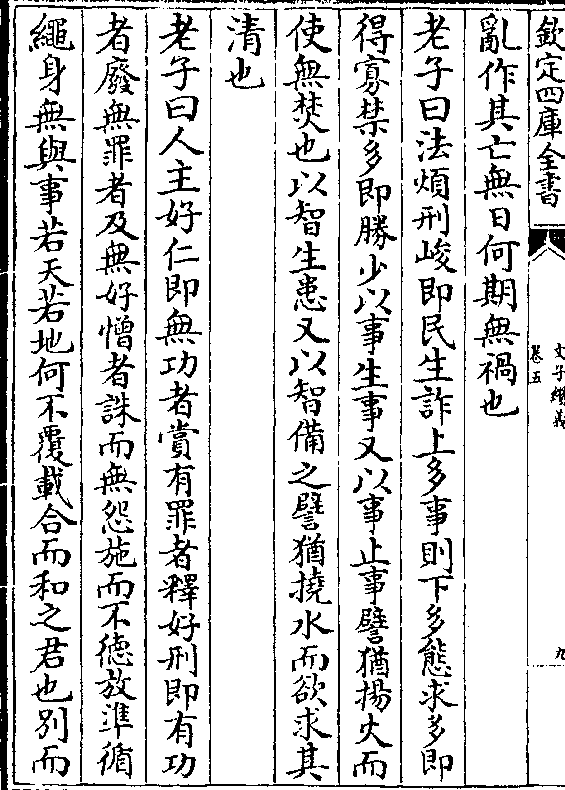 欽定四庫全書
文子纘義
卷五
九
亂作其亡無日何期無禍也
老子曰法煩刑峻即民生詐上多事則下多態求多即
得寡禁多即勝少以事生事又以事止事譬猶揚火而
使無焚也以智生患又以智備之譬猶撓水而欲求其
清也
老子曰人主好仁即無功者賞有罪者釋好刑即有功
者廢無罪者及無好憎者誅而無怨施而不德放準循
繩身無與事若天若地何不覆載合而和之君也別而